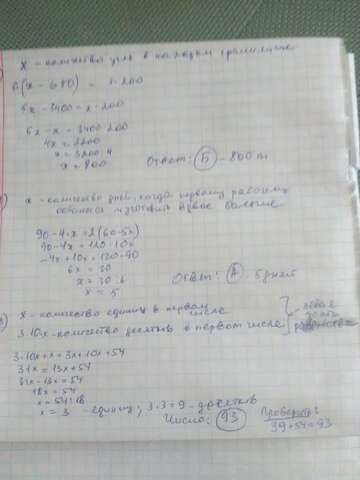 x - количество угля в каждом хранилище
(x - 680) = x-200
5x-3400 = x-200
5x-x = 3400-200
4x = 3200
x = 3200:4
x = 800
Ответ: Б - 800 т
x - количество дней, когда первому рабочему
останется изготовить вдвое больше
90-4x = 2(60-5x)
90-4x = 120-10x
-4x+10x = 120-90
6x = 30
x = 30:6
x = 5
Ответ: А. 5 дней
x - количество единиц в первом числе
3·10x - количество десятков в первом числе
3·10x+x = 3x+10x+54
31x = 13x+54
31x-13x = 54
18x = 54
x = 54:18
x = 3 - единиц; 3·3=9 - десятков
Число: 93
Проверить:
39+54=93